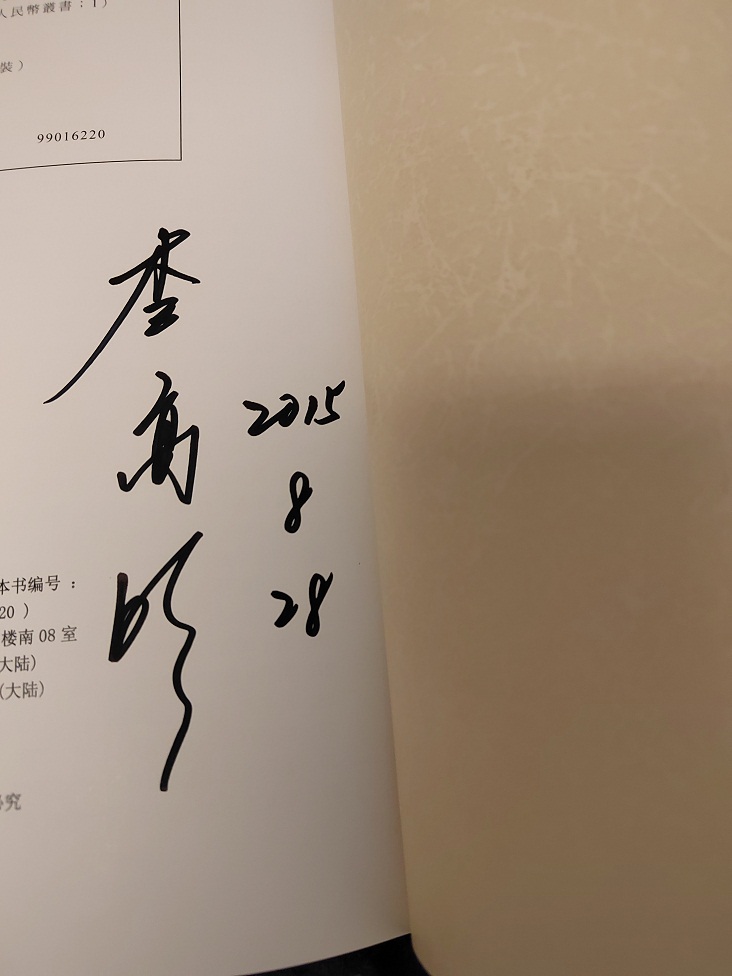 人民幣叢書：1）
裝）
99016220
高
2015
8
28
本书编号：
20 ）
楼南 08 室
大陆)
(大陆)
必究